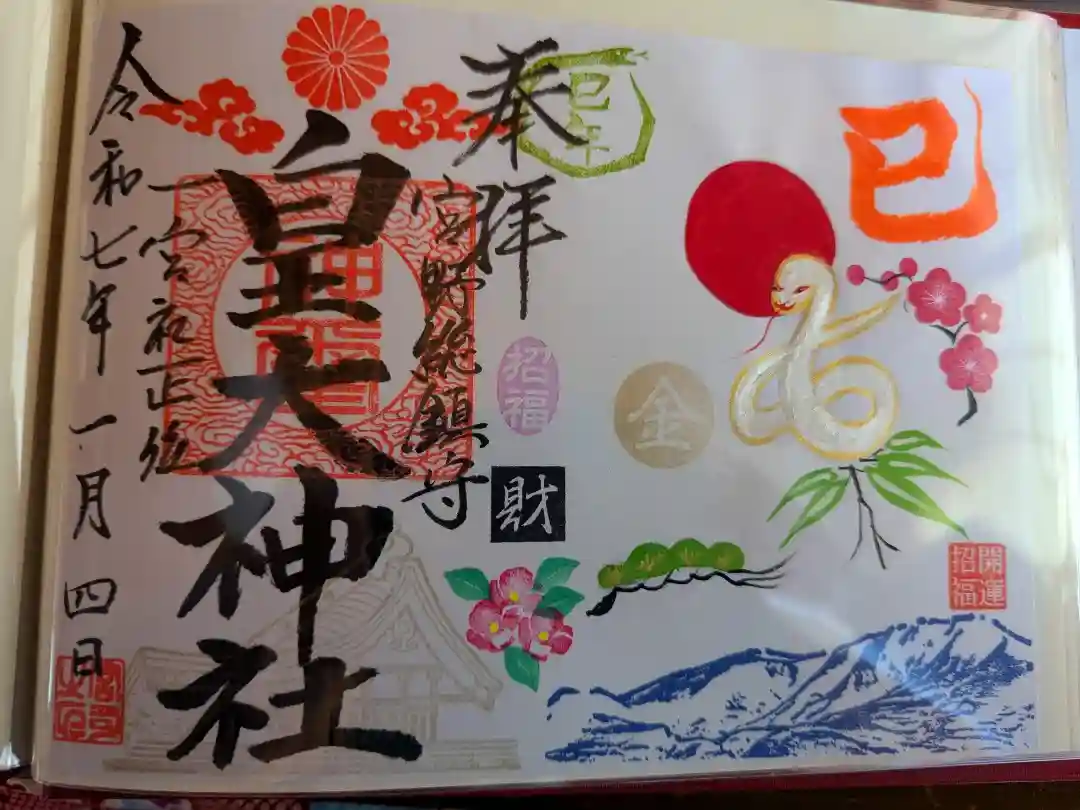 巳
巳年
奉拝
宮野総鎮守
皇大神社
一宮社正後
令和七年一月四日
招福
財
金
開運
招福